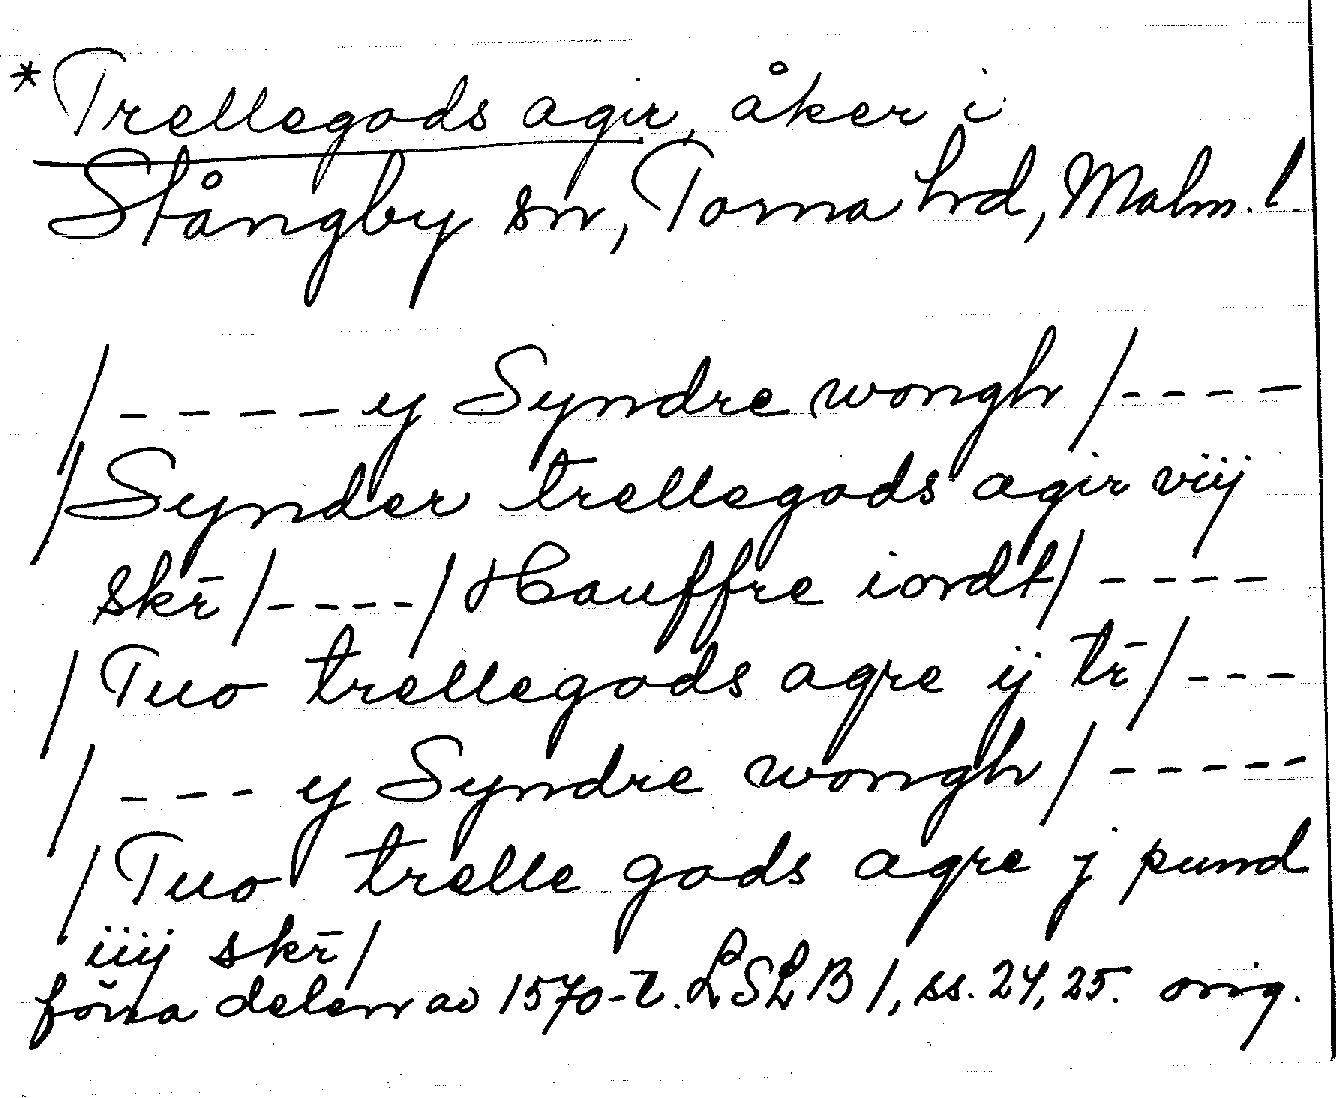 *Trellegods agir, åker i
Stångby sn, Torna hrd, Malm. l.
/ - - - - - y Syndre wongh / - - - -
/ Synder trellegods agir viij
skr̄ / - - - - / Hauffre iordt / - - - -
/ Tuo trellegods agre ij tr̄ / - - -
/ - - - y Syndre wongh / - - - - -
/ Tuo trelle gods agre j pund
iiij skr̄ /
förra delen av 1570-t. LSLB 1, ss. 24, 25. orig.